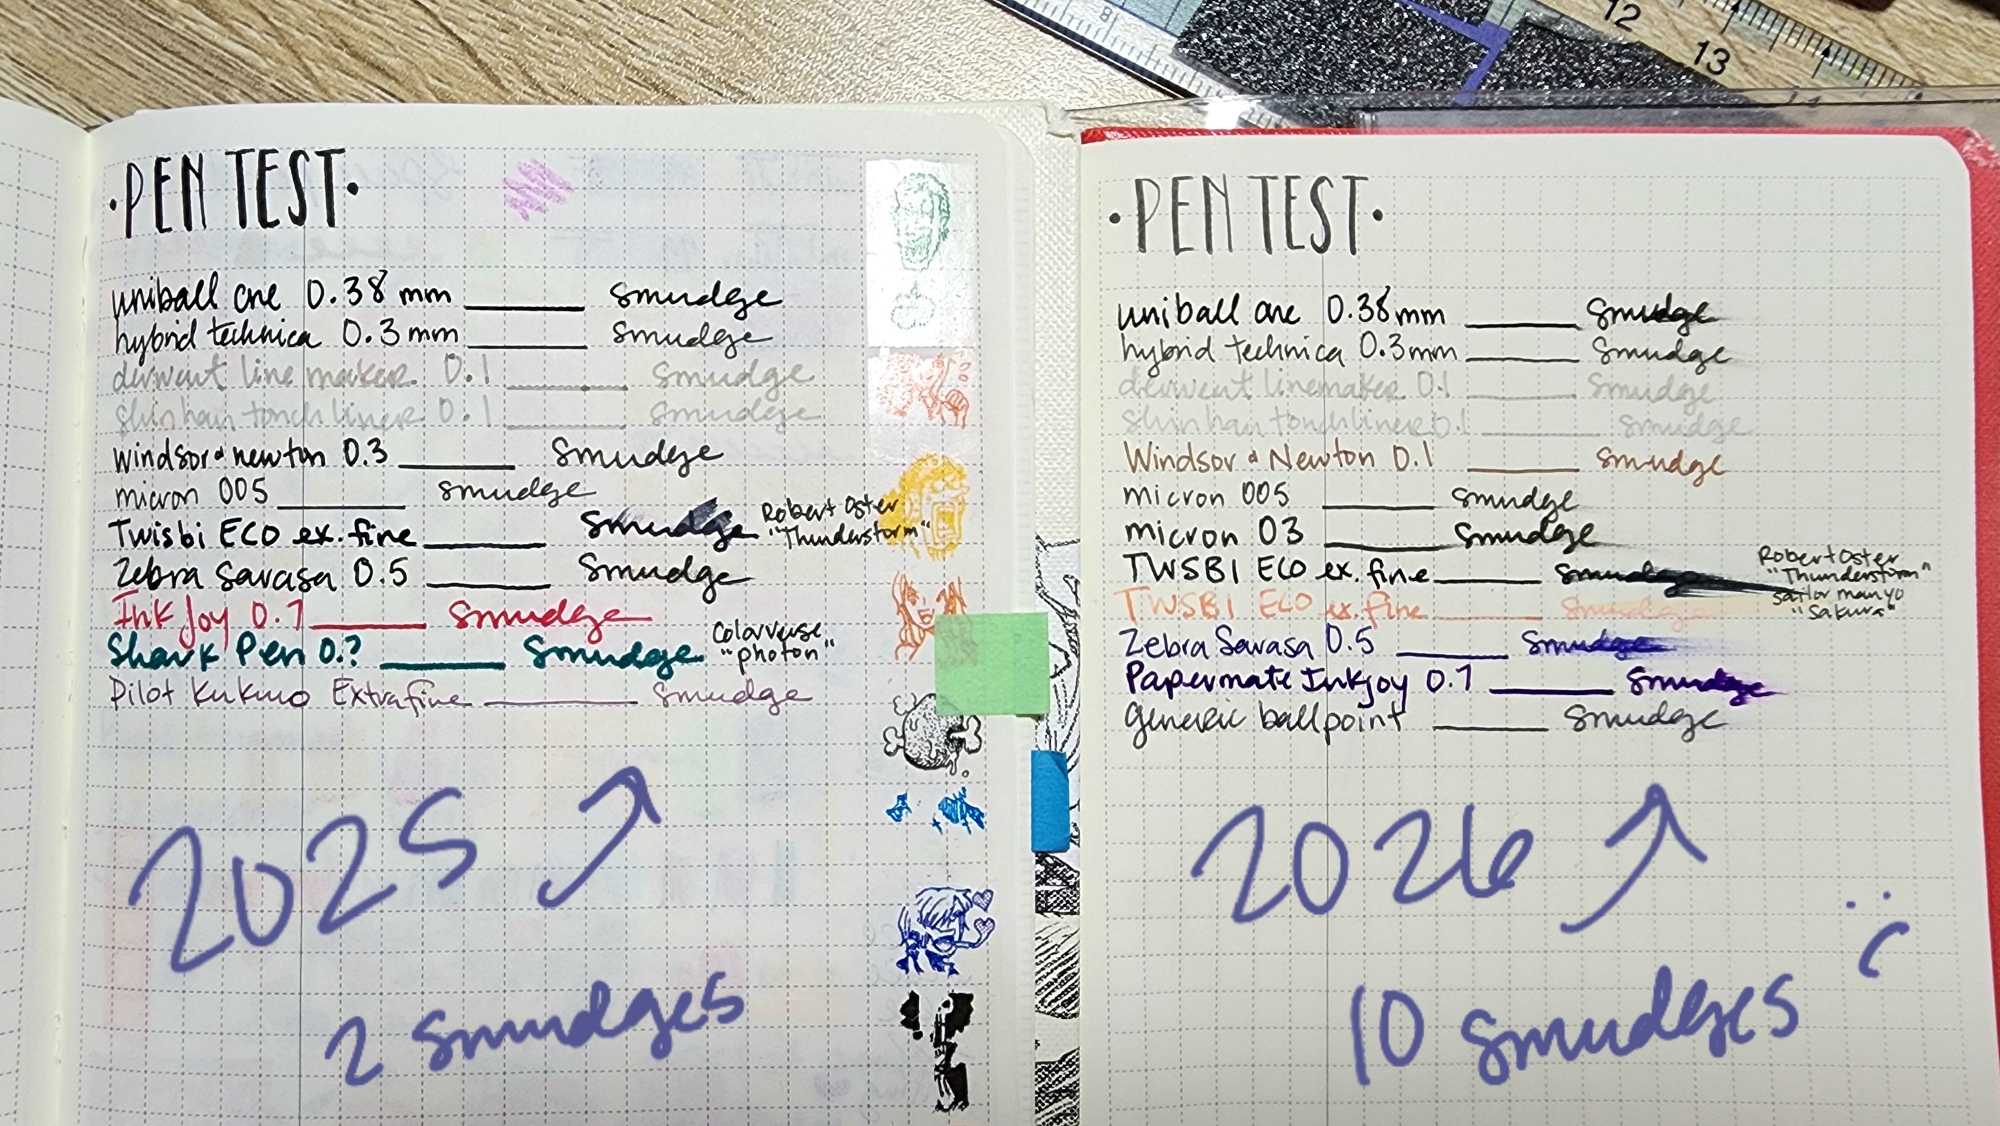 ·PEN TEST·
uniball one 0.38 mm smudge
hybrid technica 0.3 mm smudge
derwent line maker 0.1 smudge
shinhan touch liner 0.1 smudge
windsor & newton 0.3 smudge
micron 005 smudge
Twisbi ECO ex. fine smudge Robert Oster "Thunderstorm"
Zebra Sarasa 0.5 smudge
InkJoy 0.7 smudge
Shark Pen 0.? smudge Colorverse "photon"
Pilot Kukuno Extrafine smudge
2025
2 smudges
·PEN TEST·
uniball one 0.38mm smudge
hybrid technica 0.3mm smudge
derwent linemaker 0.1 smudge
shinhan touchliner 0.1 smudge
Windsor & Newton 0.1 smudge
micron 005 smudge
micron 03 smudge
TWSBI ECO ex. fine smudge Robert Oster "Thunderstorm"
TWSBI ECO ex. fine smudge Sailor manyo "Sakura"
Zebra Sarasa 0.5 smudge
Papermate Inkjoy 0.7 smudge
generic ballpoint smudge
2026
:(
10 smudges
8
12
13